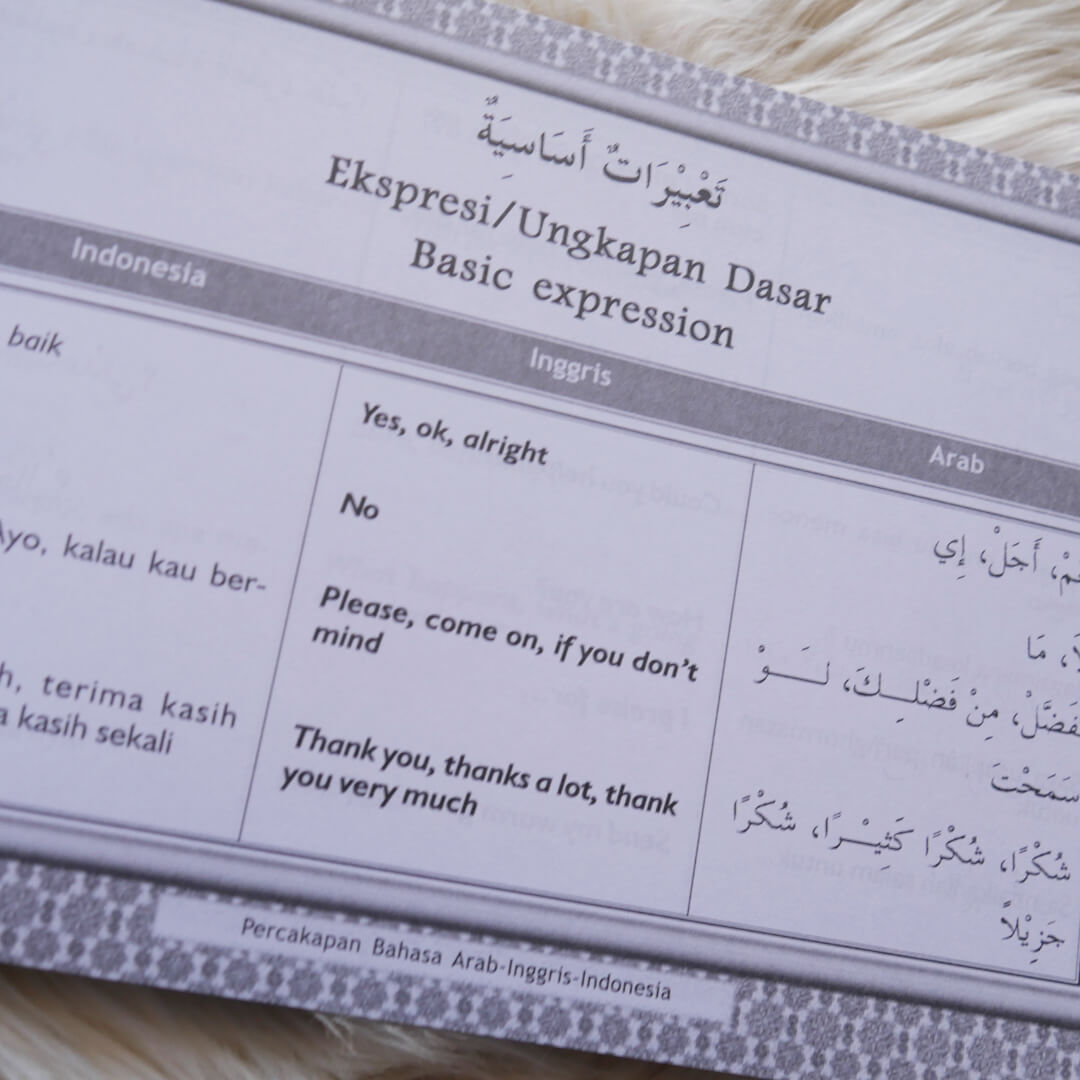 تَعْبِيْرَاتٌ أَسَاسِيَةٌ
Ekspresi/Ungkapan Dasar
Basic expression
Indonesia
Inggris
Arab
baik
Ayo, kalau kau ber-
terima kasih
kasih sekali
Yes, ok, alright
No
Please, come on, if you don't
mind
Thank you, thanks a lot, thank
you very much
أَجَلْ، إِي
مَا
مِنْ فَضْلِـــكَ، لَـــوْ
سَمَحْتَ
شُكْرًا، شُكْرًا كَثِيْـــرًا، شُكْرًا
جَزِيْلاً
Percakapan Bahasa Arab-Inggris-Indonesia